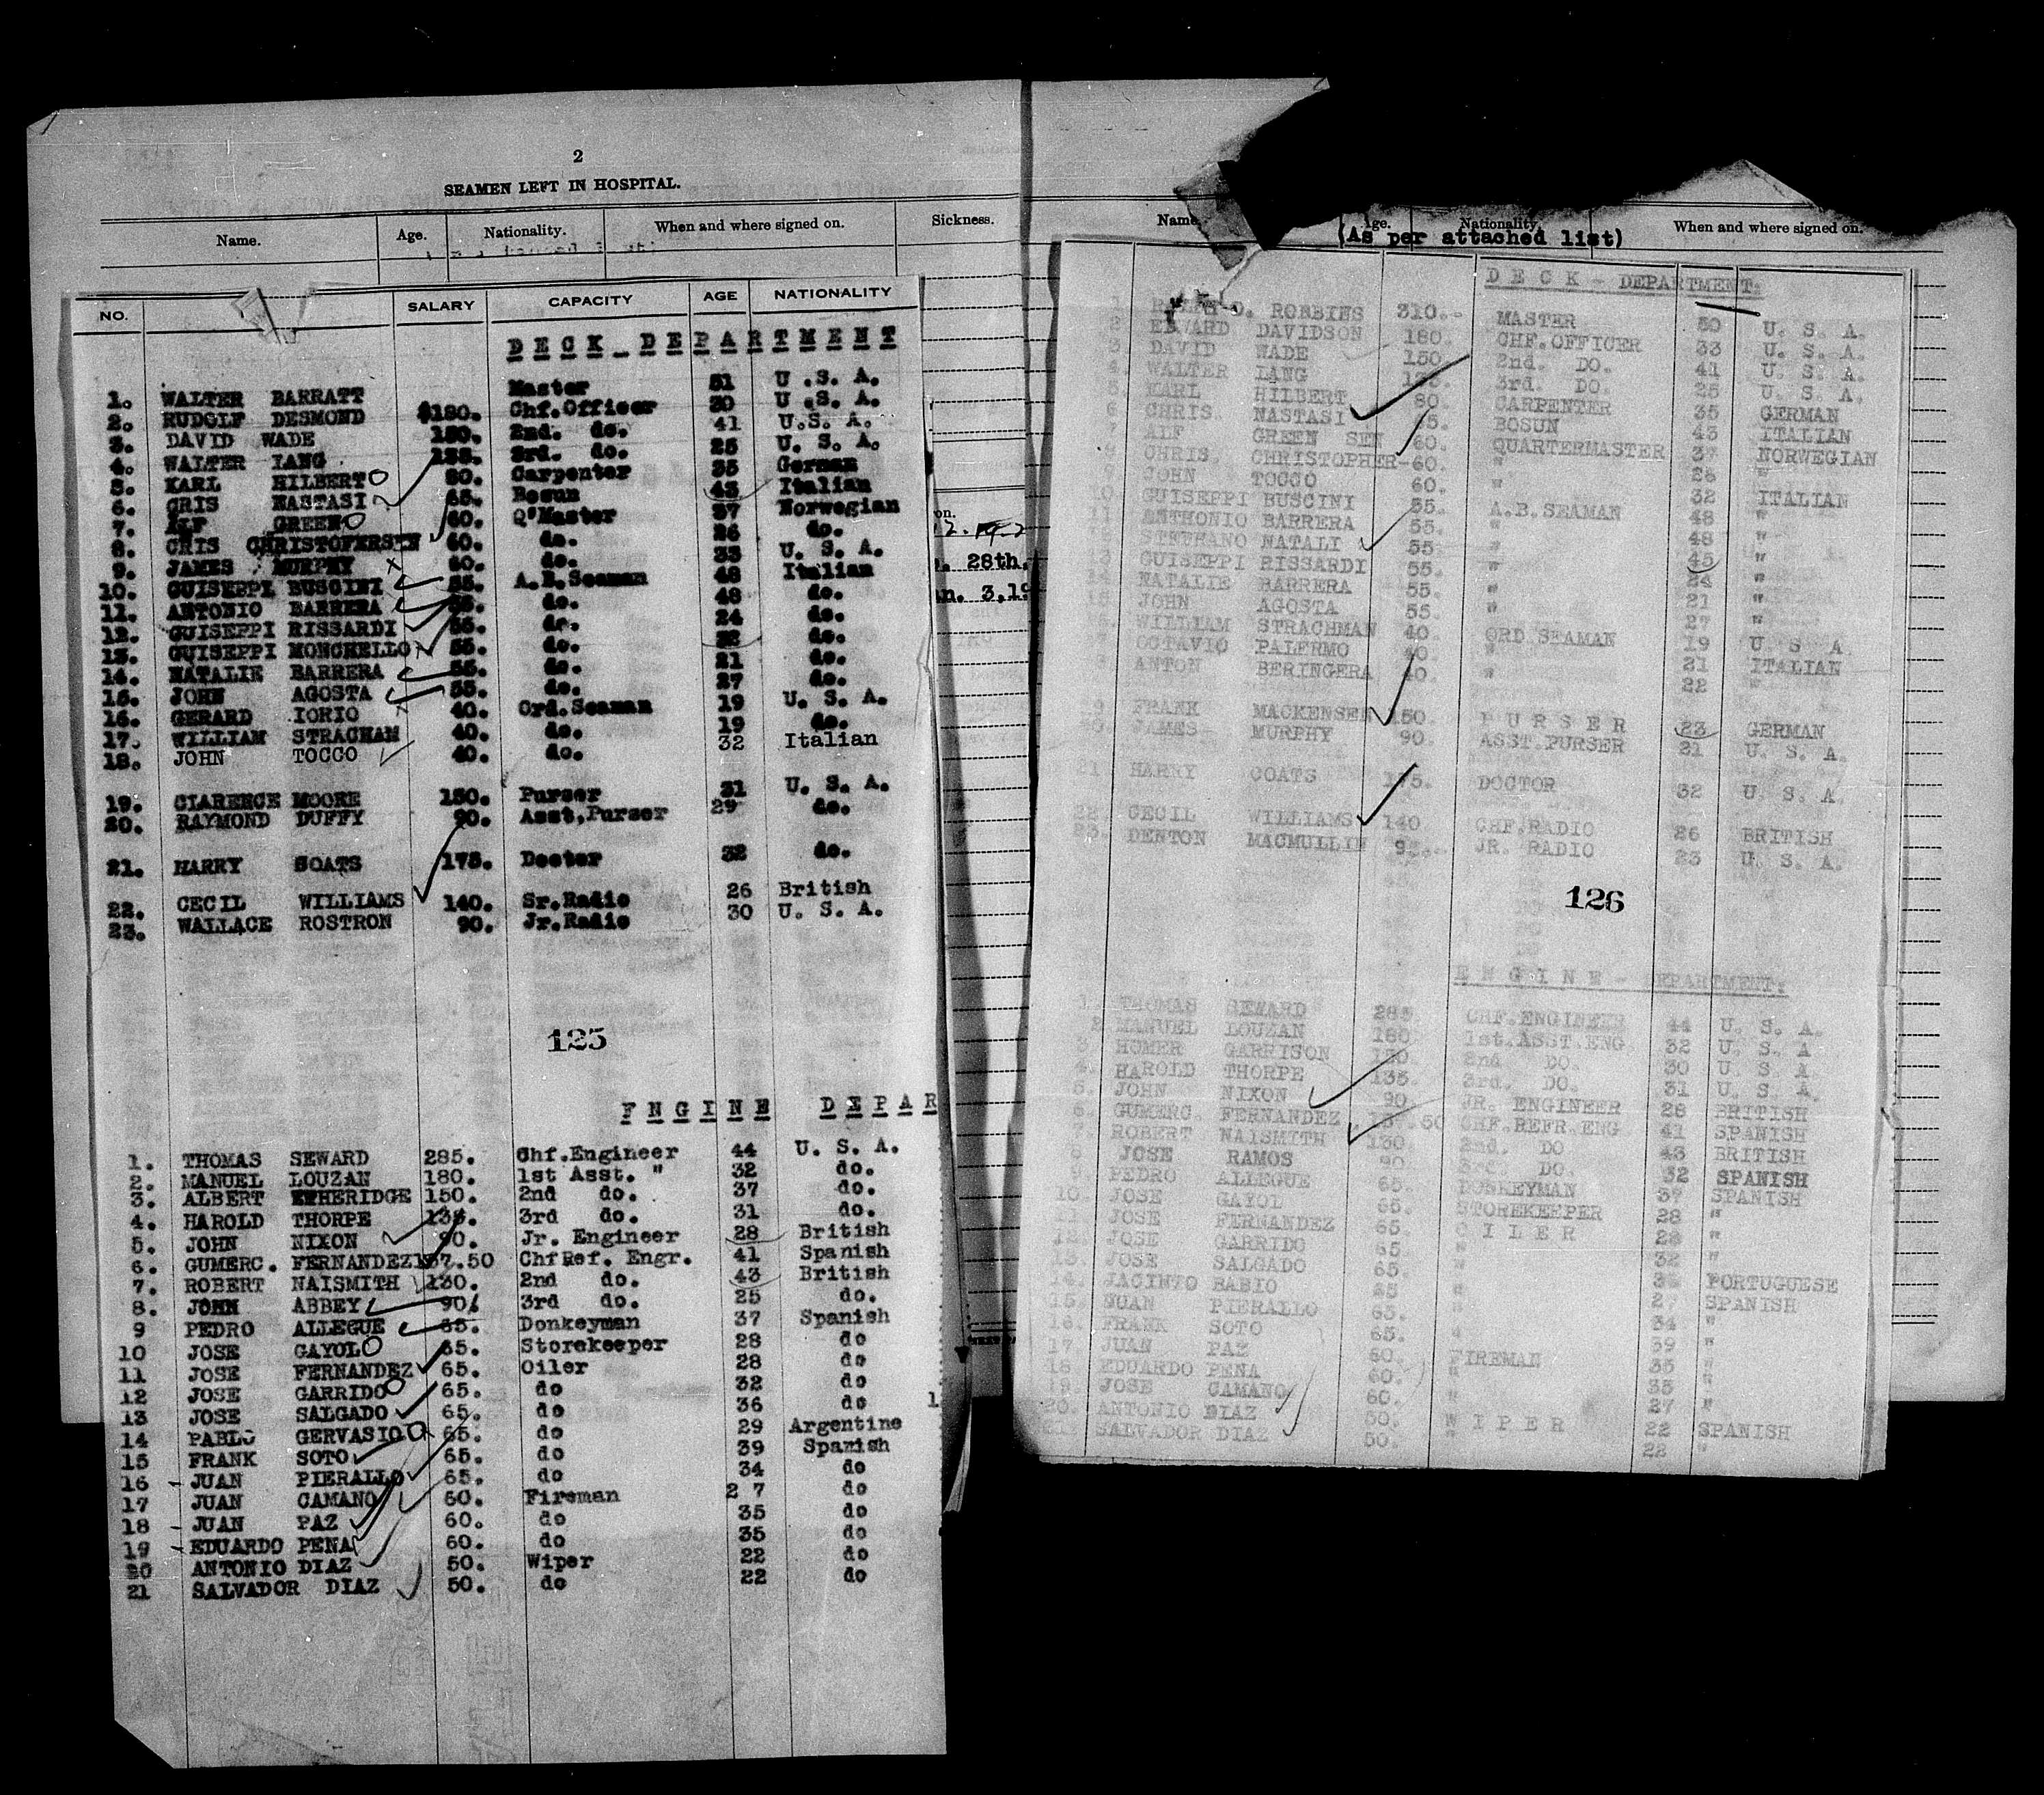 2
SEAMEN LEFT IN HOSPITAL.
Name. Age. Nationality. When and where signed on. Sickness.
NO. SALARY CAPACITY AGE NATIONALITY
DECK DEPARTMENT
1. WALTER BARRATT Master 51 U.S.A.
2. RUDOLF DESMOND $180. Chf.Officer 30 U.S.A.
3. DAVID WADE 150. 2nd. do. 41 U.S.A.
4. WALTER LANG 135. 3rd. do. 25 U.S.A.
5. KARL HILBERT 80. Carpenter 35 German
6. CRIS NASTASI 65. Bosun 43 Italian
7. ALF GREEN 60. Q'Master 37 Norwegian
8. CRIS CHRISTOFERSEN 60. do. 26 do.
9. JAMES MURPHY 60. do. 33 U.S.A.
10. GUISEPPI BUSCINI 55. A.B.Seaman 48 Italian
11. ANTONIO BARRERA 55. do. 48 do.
12. GUISEPPI RISSARDI 55. do. 24 do.
13. GUISEPPI MONCHELLO 55. do. 22 do.
14. NATALIE BARRERA 55. do. 21 do.
15. JOHN AGOSTA 55. do. 27 do.
16. GERARD IORIO 40. Ord.Seaman 19 U.S.A.
17. WILLIAM STRACHAN 40. do. 19 do.
18. JOHN TOCCO 40. do. 32 Italian
19. CLARENCE MOORE 150. Purser 31 U.S.A.
20. RAYMOND DUFFY 90. Asst.Purser 29 do.
21. HARRY COATS 175. Doctor 32 do.
22. CECIL WILLIAMS 140. Sr.Radio 26 British
23. WALLACE ROSTRON 90. Jr.Radio 30 U.S.A.
125
ENGINE DEPAR
1. THOMAS SEWARD 285. Chf.Engineer 44 U.S.A.
2. MANUEL LOUZAN 180. 1st Asst. " 32 do.
3. ALBERT ETHERIDGE 150. 2nd do. 37 do.
4. HAROLD THORPE 135. 3rd do. 31 do.
5. JOHN NIXON 90. Jr. Engineer 28 British
6. GUMERC. FERNANDEZ 157.50 ChfRef. Engr. 41 Spanish
7. ROBERT NAISMITH 130. 2nd do. 43 British
8. JOHN ABBEY 90. 3rd do. 25 do.
9 PEDRO ALLEGUE 65. Donkeyman 37 Spanish
10 JOSE GAYOL 65. Storekeeper 28 do
11 JOSE FERNANDEZ 65. Oiler 28 do
12 JOSE GARRIDO 65. do 32 do
13 JOSE SALGADO 65. do 36 do 1
14 PABLO GERVASIO 65. do 29 Argentine
15 FRANK SOTO 65. do 39 Spanish
16 - JUAN PIERALLO 65. do 34 do
17 JUAN CAMANO 60. Fireman 2 7 do
18 - JUAN PAZ 60. do 35 do
19 - EDUARDO PENA 60. do 35 do
20 ANTONIO DIAZ 50. Wiper 22 do
21 SALVADOR DIAZ 50. do 22 do
on.
28th,
n. 3,19
Name. Age. Nationality. When and where signed on.
(As per attached list)
DECK - DEPARTMENT:
O. ROBBINS 310.- MASTER 50 U. S. A.
2 EDWARD DAVIDSON 180. CHF.OFFICER 33 U. S. A.
3 DAVID WADE 150. 2nd. DO. 41 U. S. A.
4. WALTER LANG 135. 3rd. DO. 25 U. S. A.
5. KARL HILBERT 80. CARPENTER 35 GERMAN
6 CHRIS. NASTASI 65. BOSUN 43 ITALIAN
7 ALF GREEN SEN 60. QUARTERMASTER 37 NORWEGIAN
8 CHRIS. CHRISTOPHER-60. " 26 "
9 JOHN TOCCO 60. " 32 ITALIAN
10 GUISEPPI BUSCINI 55. A.B.SEAMAN 48 "
11 ANTHONIO BARRERA 55. " 48 "
STEFHANO NATALI 55 " 45 "
13 GUISEPPI RISSARDI 55. " 24 "
14 NATALIE BARRERA 55. " 21 "
15 JOHN AGOSTA 55. " 27 "
WILLIAM STRACHMAN 40. ORD.SEAMAN 19 U. S A.
OCTAVIO PALERMO 40. " 21 ITALIAN
ANTON BERINGERA 40. 22 "
19 FRANK MACKENSEN 150 PURSER 23 GERMAN
20. JAMES MURPHY 90. ASST.PURSER 21 U. S. A.
21 HARRY COATS 175. DOCTOR 32 U. S. A.
22 CECIL WILLIAMS 140 CHF.RADIO 26 BRITISH
23. DENTON MACMULLIN JR. RADIO 23 U. S. A.
126
ENGINE - DEPARTMENT:
1 THOMAS SEWARD 285. CHF.ENGINEER 44 U. S. A.
2 MANUEL LOUZAN 180. 1st.ASST.ENG. 32 U. S. A
3 HOMER GARRISON 150. 2nd DO. 30 U. S. A.
4. HAROLD THORPE 135. 3rd. DO. 31 U. S. A.
5. JOHN NIXON 90. JR. ENGINEER 28 BRITISH
6. GUMERC. FERNANDEZ 157.50 CHF.REFR.ENG 41 SPANISH
7. ROBERT NAISMITH 130. 2nd. DO 43 BRITISH
8 JOSE RAMOS 90 3rd. DO. 32 SPANISH
9. PEDRO ALLEGUE 65. DONKEYMAN 37 SPANISH
10. JOSE GAYOL 65. STOREKEEPER 28 "
11. JOSE FERNANDEZ 65. OILER 28 "
12. JOSE GARRIDO 65. " 32 "
13. JOSE SALGADO 65. " 36 PORTUGUESE
14. JACINTO BABIO 65 " 27 SPANISH
15. JUAN PIERALLO 65. " 34 "
16. FRANK SOTO 65. " 39 "
17 JUAN PAZ 60. FIREMAN 35 "
18. EDUARDO PENA 60. " 35 "
19. JOSE CAMANO 60. " 27 "
20. ANTONIO DIAZ 50. WIPER 22 SPANISH
21. SALVADOR DIAZ 50. " 22 "